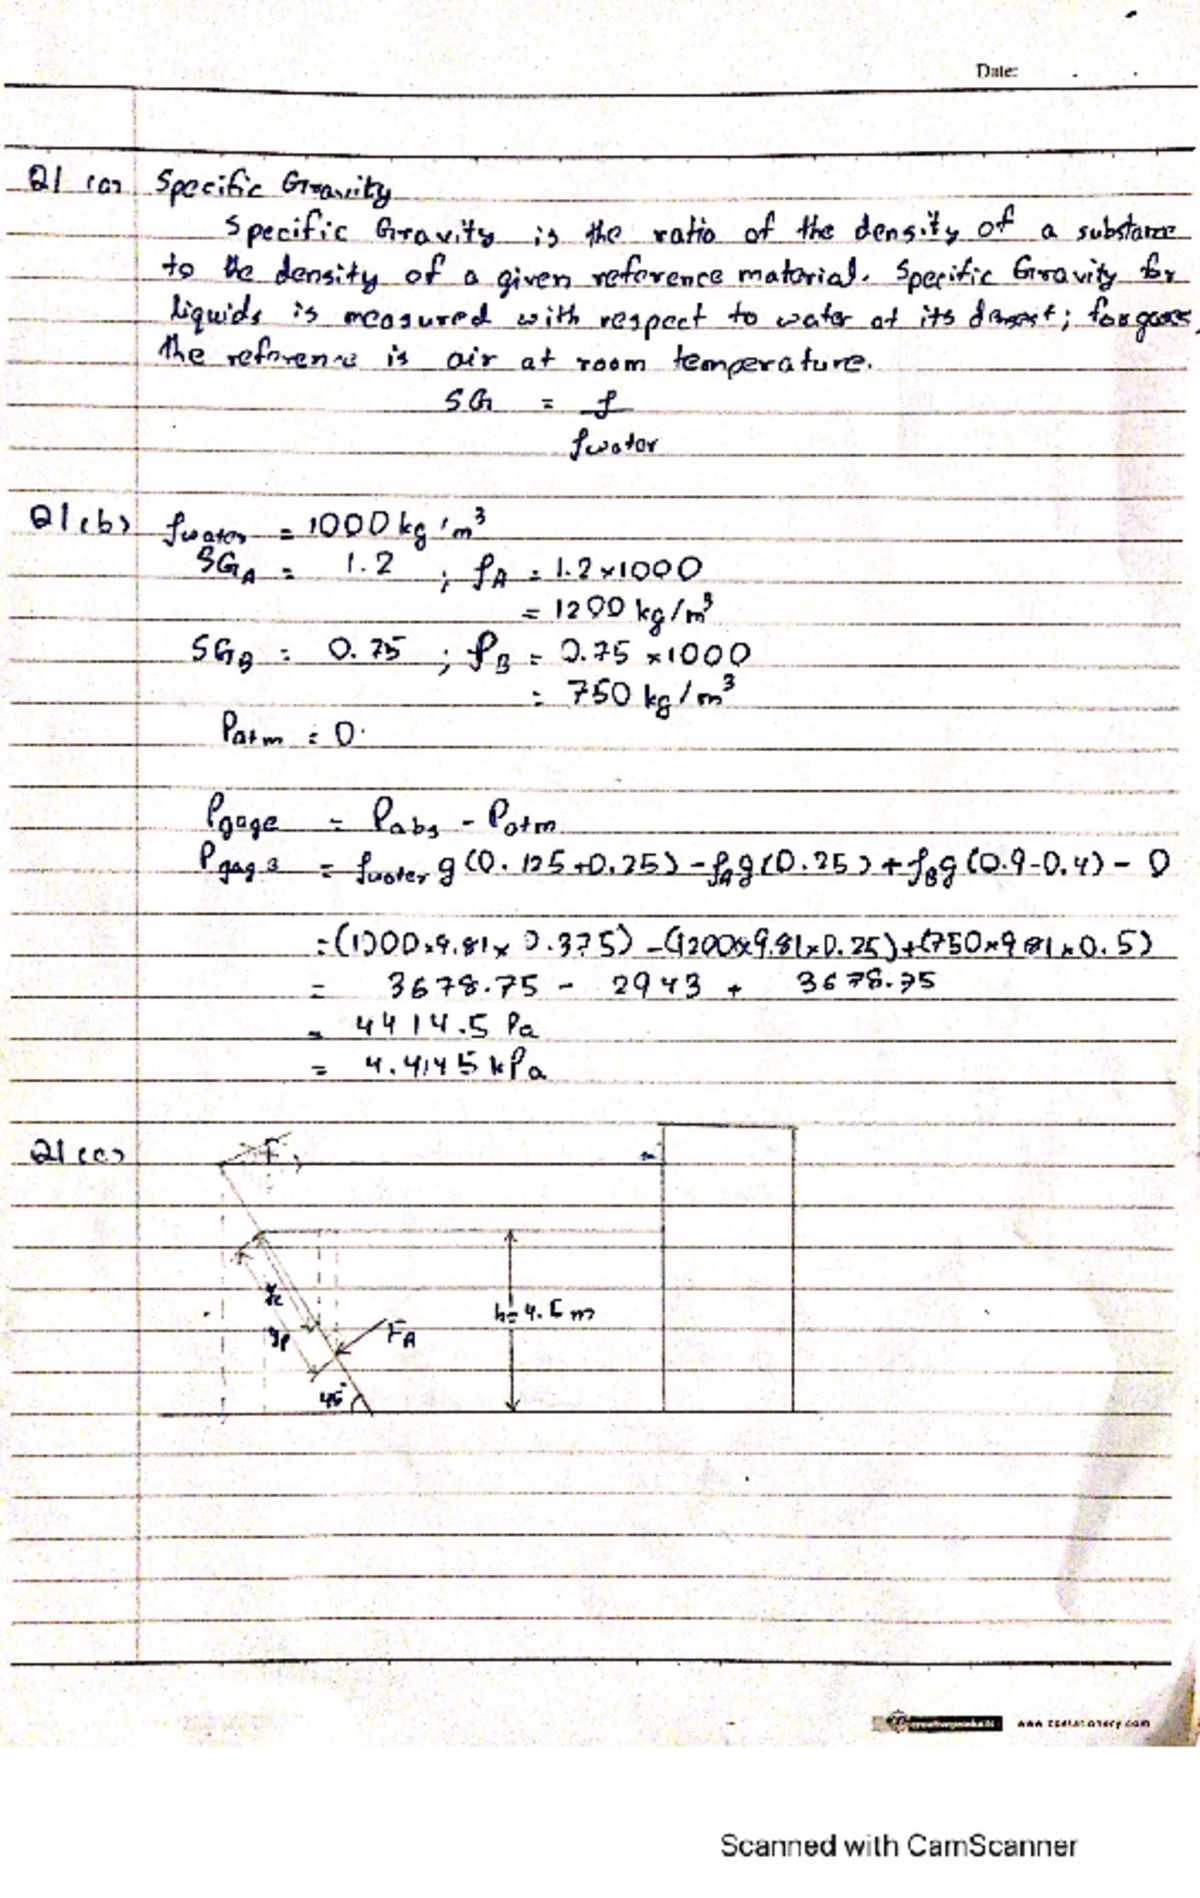 Date:
Q1 (a) Specific Gravity
Specific Gravity is the ratio of the density of a substance
to the density of a given reference material. Specific Gravity for
liquids is measured with respect to water at its densest; for gases,
the reference is air at room temperature.
SG = ρ
ρwater
Q1(b) ρwater = 1000 kg/m³
SG_A = 1.2 ; ρ_A = 1.2×1000
= 1200 kg/m³
SG_B = 0.75 ; ρ_B = 0.75 ×1000
= 750 kg/m³
Patm = 0.
Pgage = Pabs - Patm
Pgage = ρwater g (0.125+0.25) - ρ_A g (0.25) + ρ_B g (0.9-0.4) - 0
= (1000×9.81×0.375) - (1200×9.81×0.25) + (750×9.81×0.5)
= 3678.75 - 2943 + 3678.75
= 4414.5 Pa
= 4.4145 kPa
Q1 (c) F
yc
h= 4.5 m
yp F_A
45°
www.cpstationery.com
Scanned with CamScanner